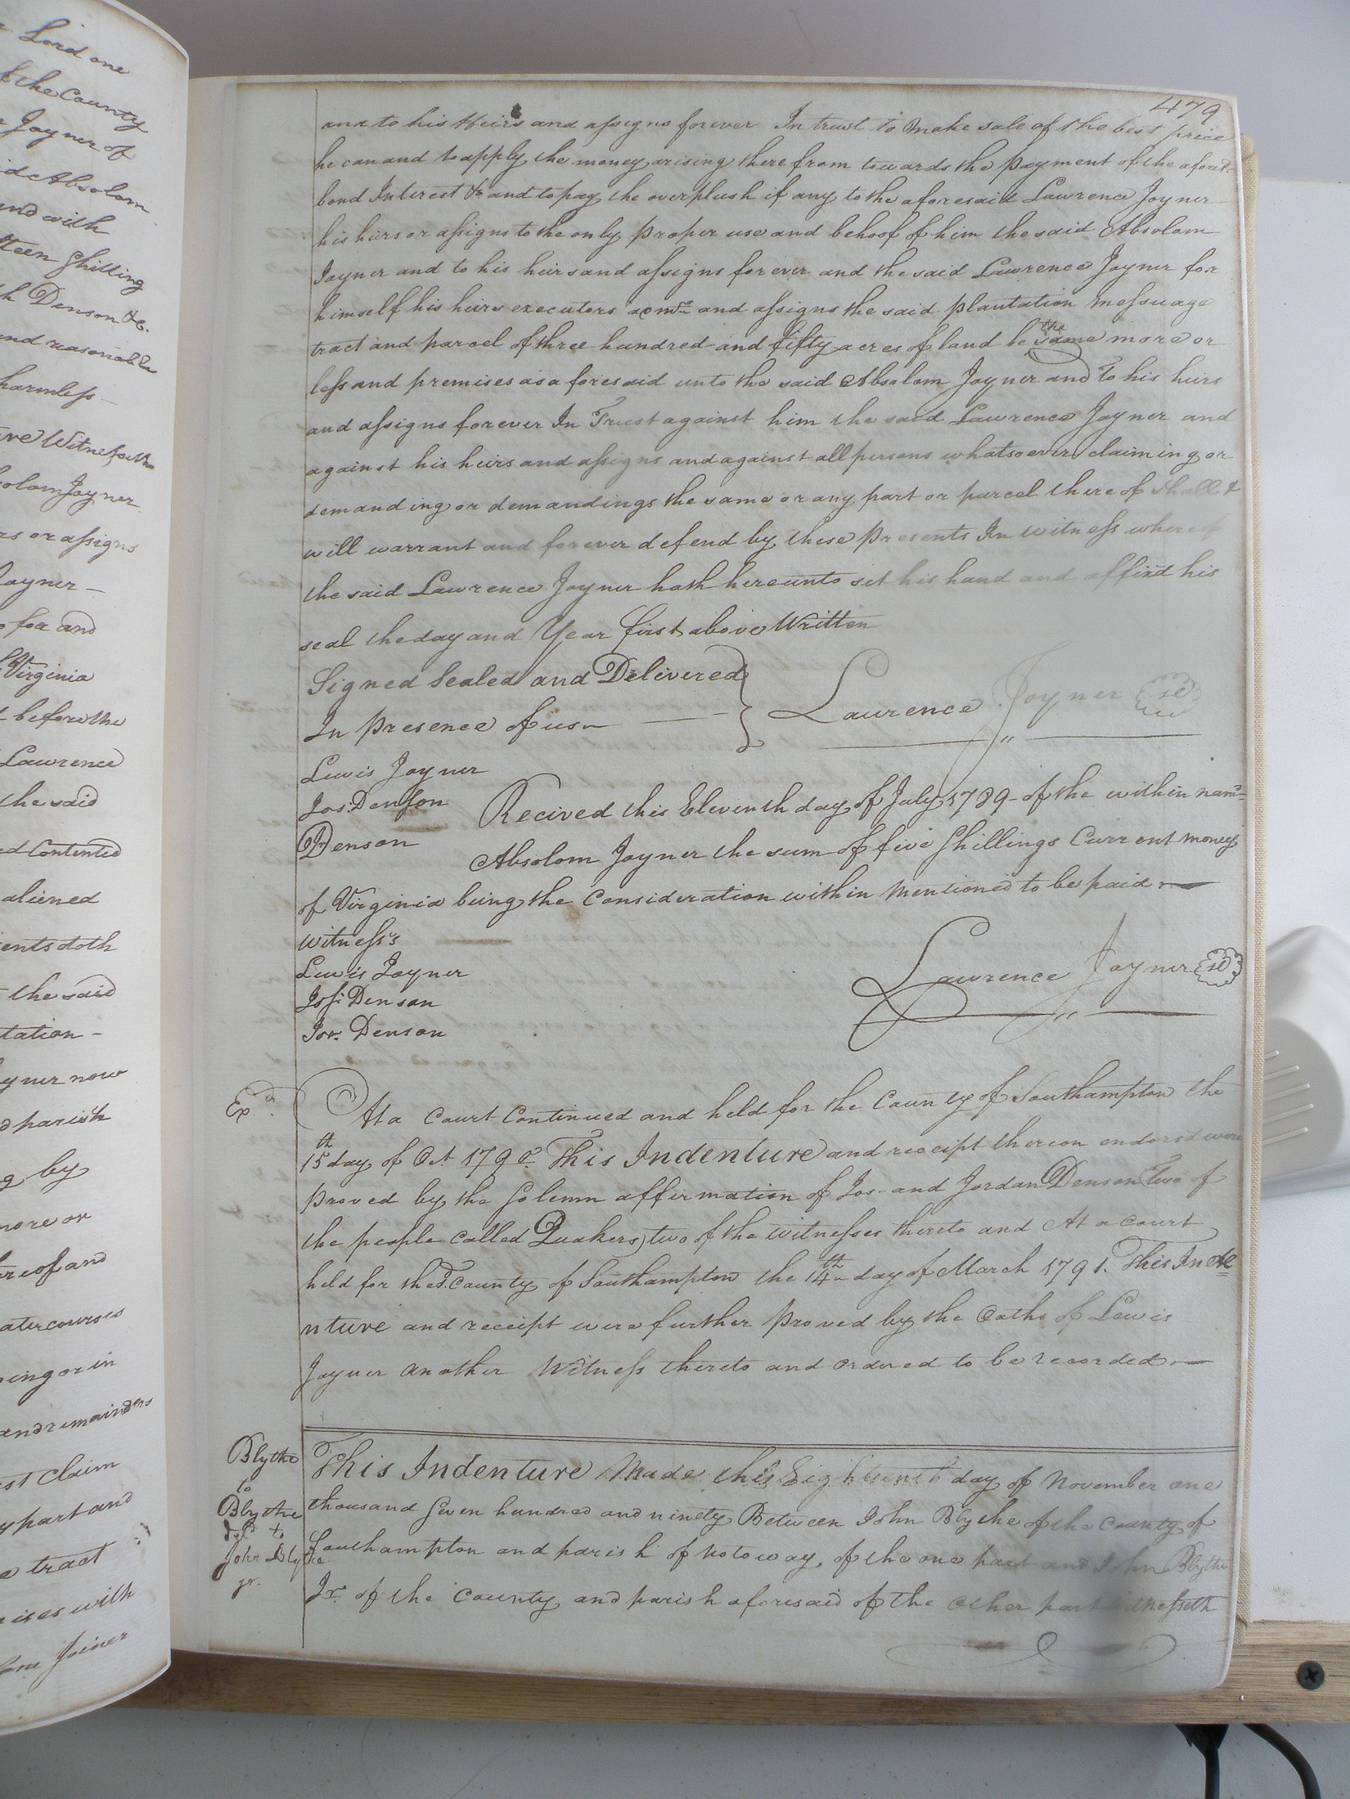 Lord one
of the County
Joyner of
Absolom
and with
teen Shilling
Denson &c.
and reasonable
harmless
Witnesseth
Absolom Joyner
or assigns
Joyner
for and
Virginia
before the
Lawrence
the said
Contented
aliened
doth
the said
tation
Joyner now
parish
by
more or
thereof and
watercourses
or in
and remainders
Claim
part and
tract
with
Joiner
479
and to his Heirs and assigns forever In trust to make sale of tho best price
he can and to apply the money arising there from towards the payment of the afores.d
bond Interest &c and to pay the overplush if any to the aforesaid Lawrence Joyner
his heirs or assigns to the only proper use and behoof of him the said Absolom
Joyner and to his heirs and assigns for ever and the said Lawrence Joyner for
himself his heirs executors admrs and assigns the said plantation messuage
tract and parcel of three hundred and fifty acres of land be the same more or
less and premises as aforesaid unto the said Absolom Joyner and To his heirs
and assigns forever In Trust against him the said Lawrence Joyner and
against his heirs and assigns and against all persons whatsoever claiming or
demanding or demandings the same or any part or parcel there of shall &
will warrant and for ever defend by these Presents In witness whereof
the said Lawrence Joyner hath hereunto set his hand and affixd his
seal the day and Year first above Written
Signed Sealed and Delivered
In Presence of us
Lawrence Joyner sd
Lewis Joyner
Jos: Denson
Denson
Recived this Eleventh day of July 1789 of the within nam.d
Absolom Joyner the sum of five Shillings Current money
of Virginia being the Consideration within Mentioned to be paid
Witness's
Lewis Joyner
Jos: Denson
Jor: Denson
Lawrence Joyner sd
Ex.d
At a Court Continued and held for the County of Southampton the
15th day of Oct 1790. This Indenture and receipt thereon endorsd were
Proved by the Solemn affirmation of Jos. and Jordan Denson Two of
the people called Quakers, two of the witnesses thereto and At a Court
held for the sd County of Southampton the 14th day of March 1791. This Inde
nture and receipt were further Proved by the Oaths of Lewis
Joyner another Witness thereto and ordered to be recorded
Blythe
to
Blythe
to
John Blythe
jr.
This Indenture Made this Eighteenth day of November one
thousand Seven hundred and ninety Between John Blythe of the County of
Southampton and parish of Notoway, of the one part and John Blythe
Jr. of the County and parish aforesaid of the Other part Witnesseth